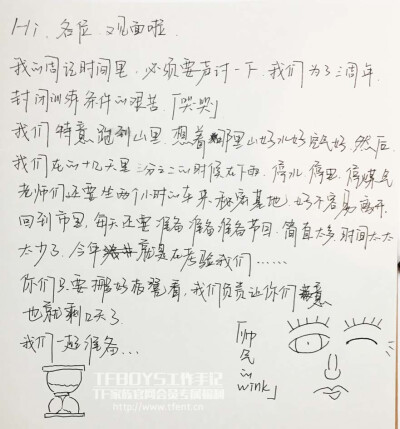 Hi, 各位 又见面啦
我的周记时间里 必须要声讨一下 我们为了三周年
封闭训练条件的艰苦「哭哭」
我们特意跑到山里 想着那里山好水好空气好 然后
我们在的十几天里三分之二的时候在下雨 停水 停电 停煤气
老师们还要坐两个小时的车来秘密基地 好不容易离开
回到市里 每天还要准备准备准备节目 简直太多 时间太太
太少了 今年 就是在考验我们……
你们只要挪好板凳看 我们负责让你们 意
也就剩12天了
我们一起准备…
「帅
气
的
wink」
TFBOYS工作手记
TF家族官网会员专属福利
http://www.tfent.cn